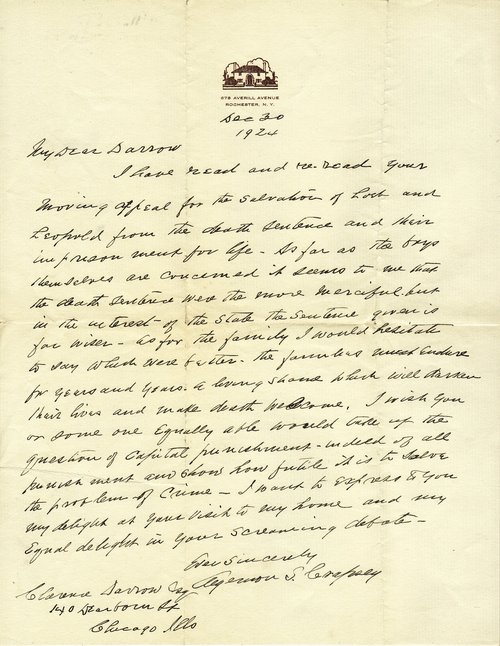 678 AVERILL AVENUE
ROCHESTER, N.Y.
Dec 30
1924
My Dear Darrow
I have read and re-read your
moving appeal for the salvation of Loeb and
Leopold from the death sentence and their
imprisonment for life - As far as the boys
themselves are concerned it seems to me that
the death sentence were the more merciful. but
in the interest of the State the sentence given is
far wiser - as for the family I would hesitate
to say which were better - the families must endure
for years and years. a living shame which will darken
their lives and make death welcome. I wish you
or some one equally able would take up the
question of capital punishment - indeed of all
punishment and show how futile it is to solve
the problem of crime - I want to express to you
my delight at your visit to my home and my
equal delight in your screaming debate -
Ever Sincerely
Algernon S. Crapsey
Clarence Darrow Esq
140 Dearborn St
Chicago Ills